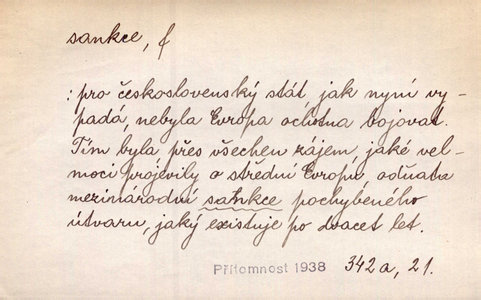 sankce, f
: pro československý stát, jak nyní vy-
padá, nebyla Evropa ochotna bojovat.
Tím byla přes všechen zájem, jaké vel-
moci projevily o střední Evropu, odňata
mezinárodní sankce pochybeného
útvaru, jaký existuje po dvacet let.
Přítomnost 1938 342a, 21.